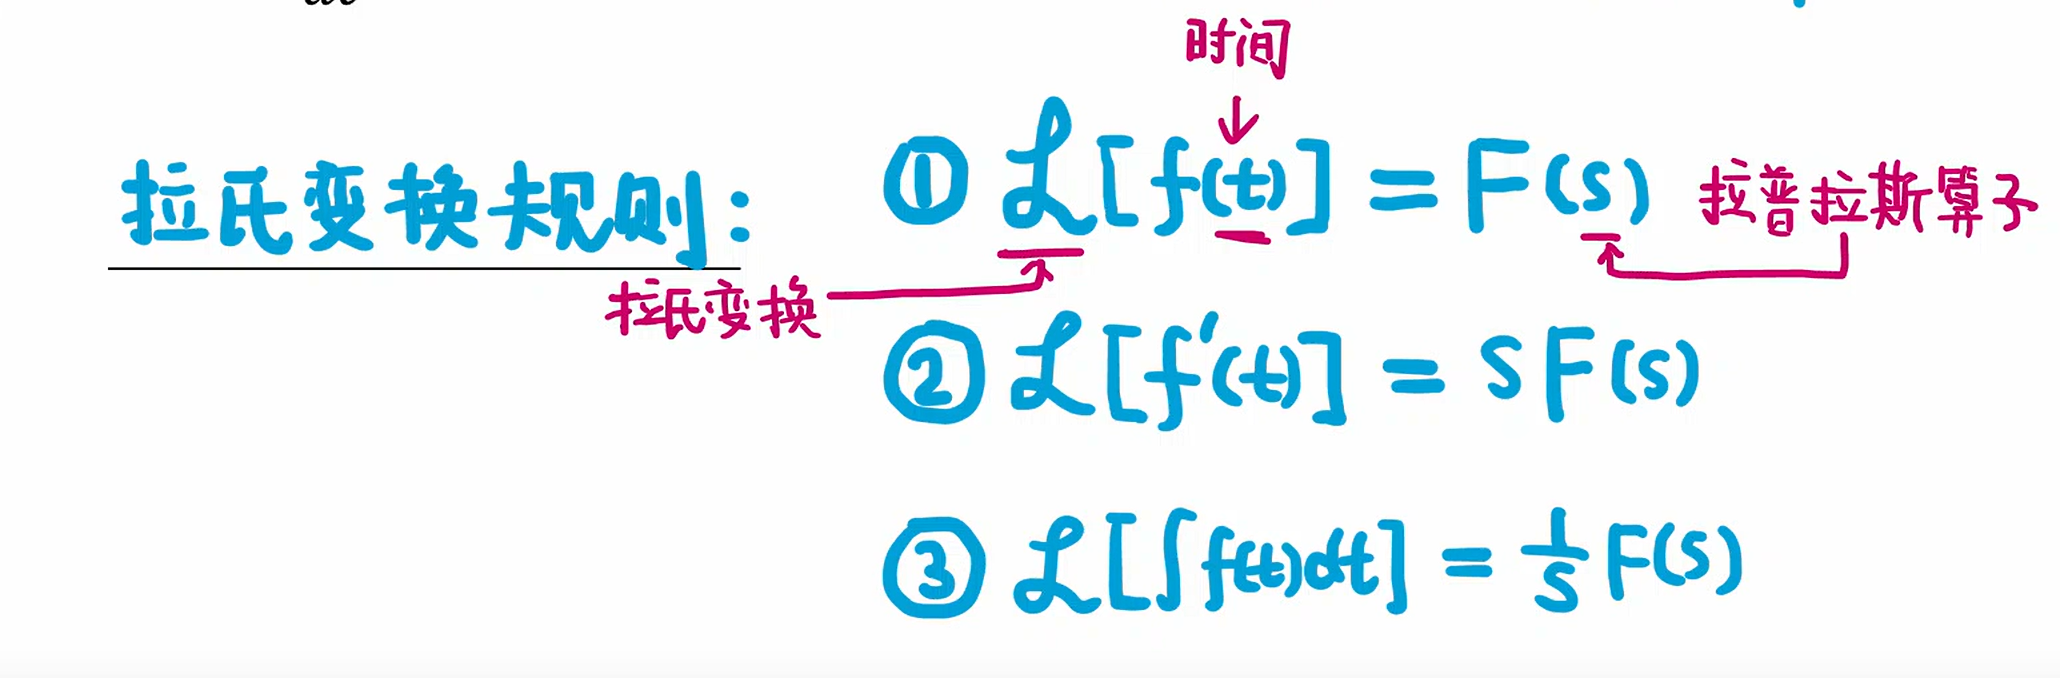 时间
拉氏变换规则: ① ℒ[f(t)] = F(s) 拉普拉斯算子
拉氏变换
② ℒ[f'(t)] = SF(s)
③ ℒ[∫f(t)dt] = 1/S F(s)